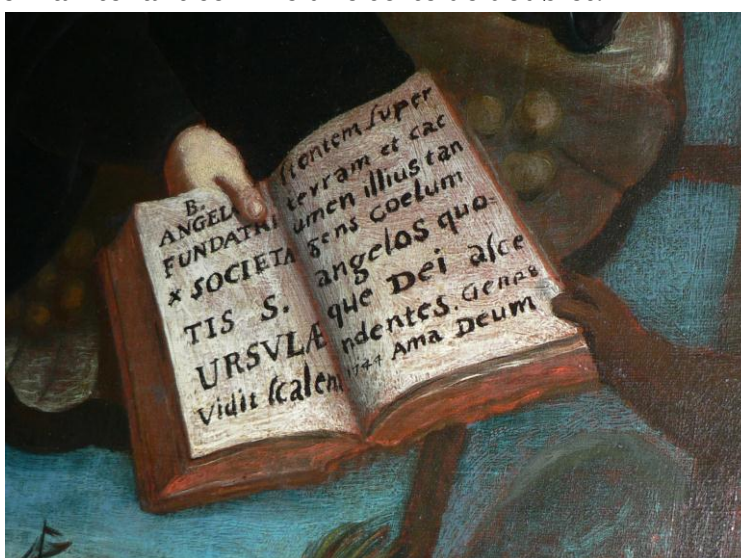 B.
ANGEL
FUNDATRI
X SOCIETA
TIS S.
URSVLÆ
Vidit ſcalem
ſtantem ſuper
terram et cac
umen illius tan
gens coelum
angelos quo-
que Dei aſce
ndentes. Genes
1744 Ama Deum